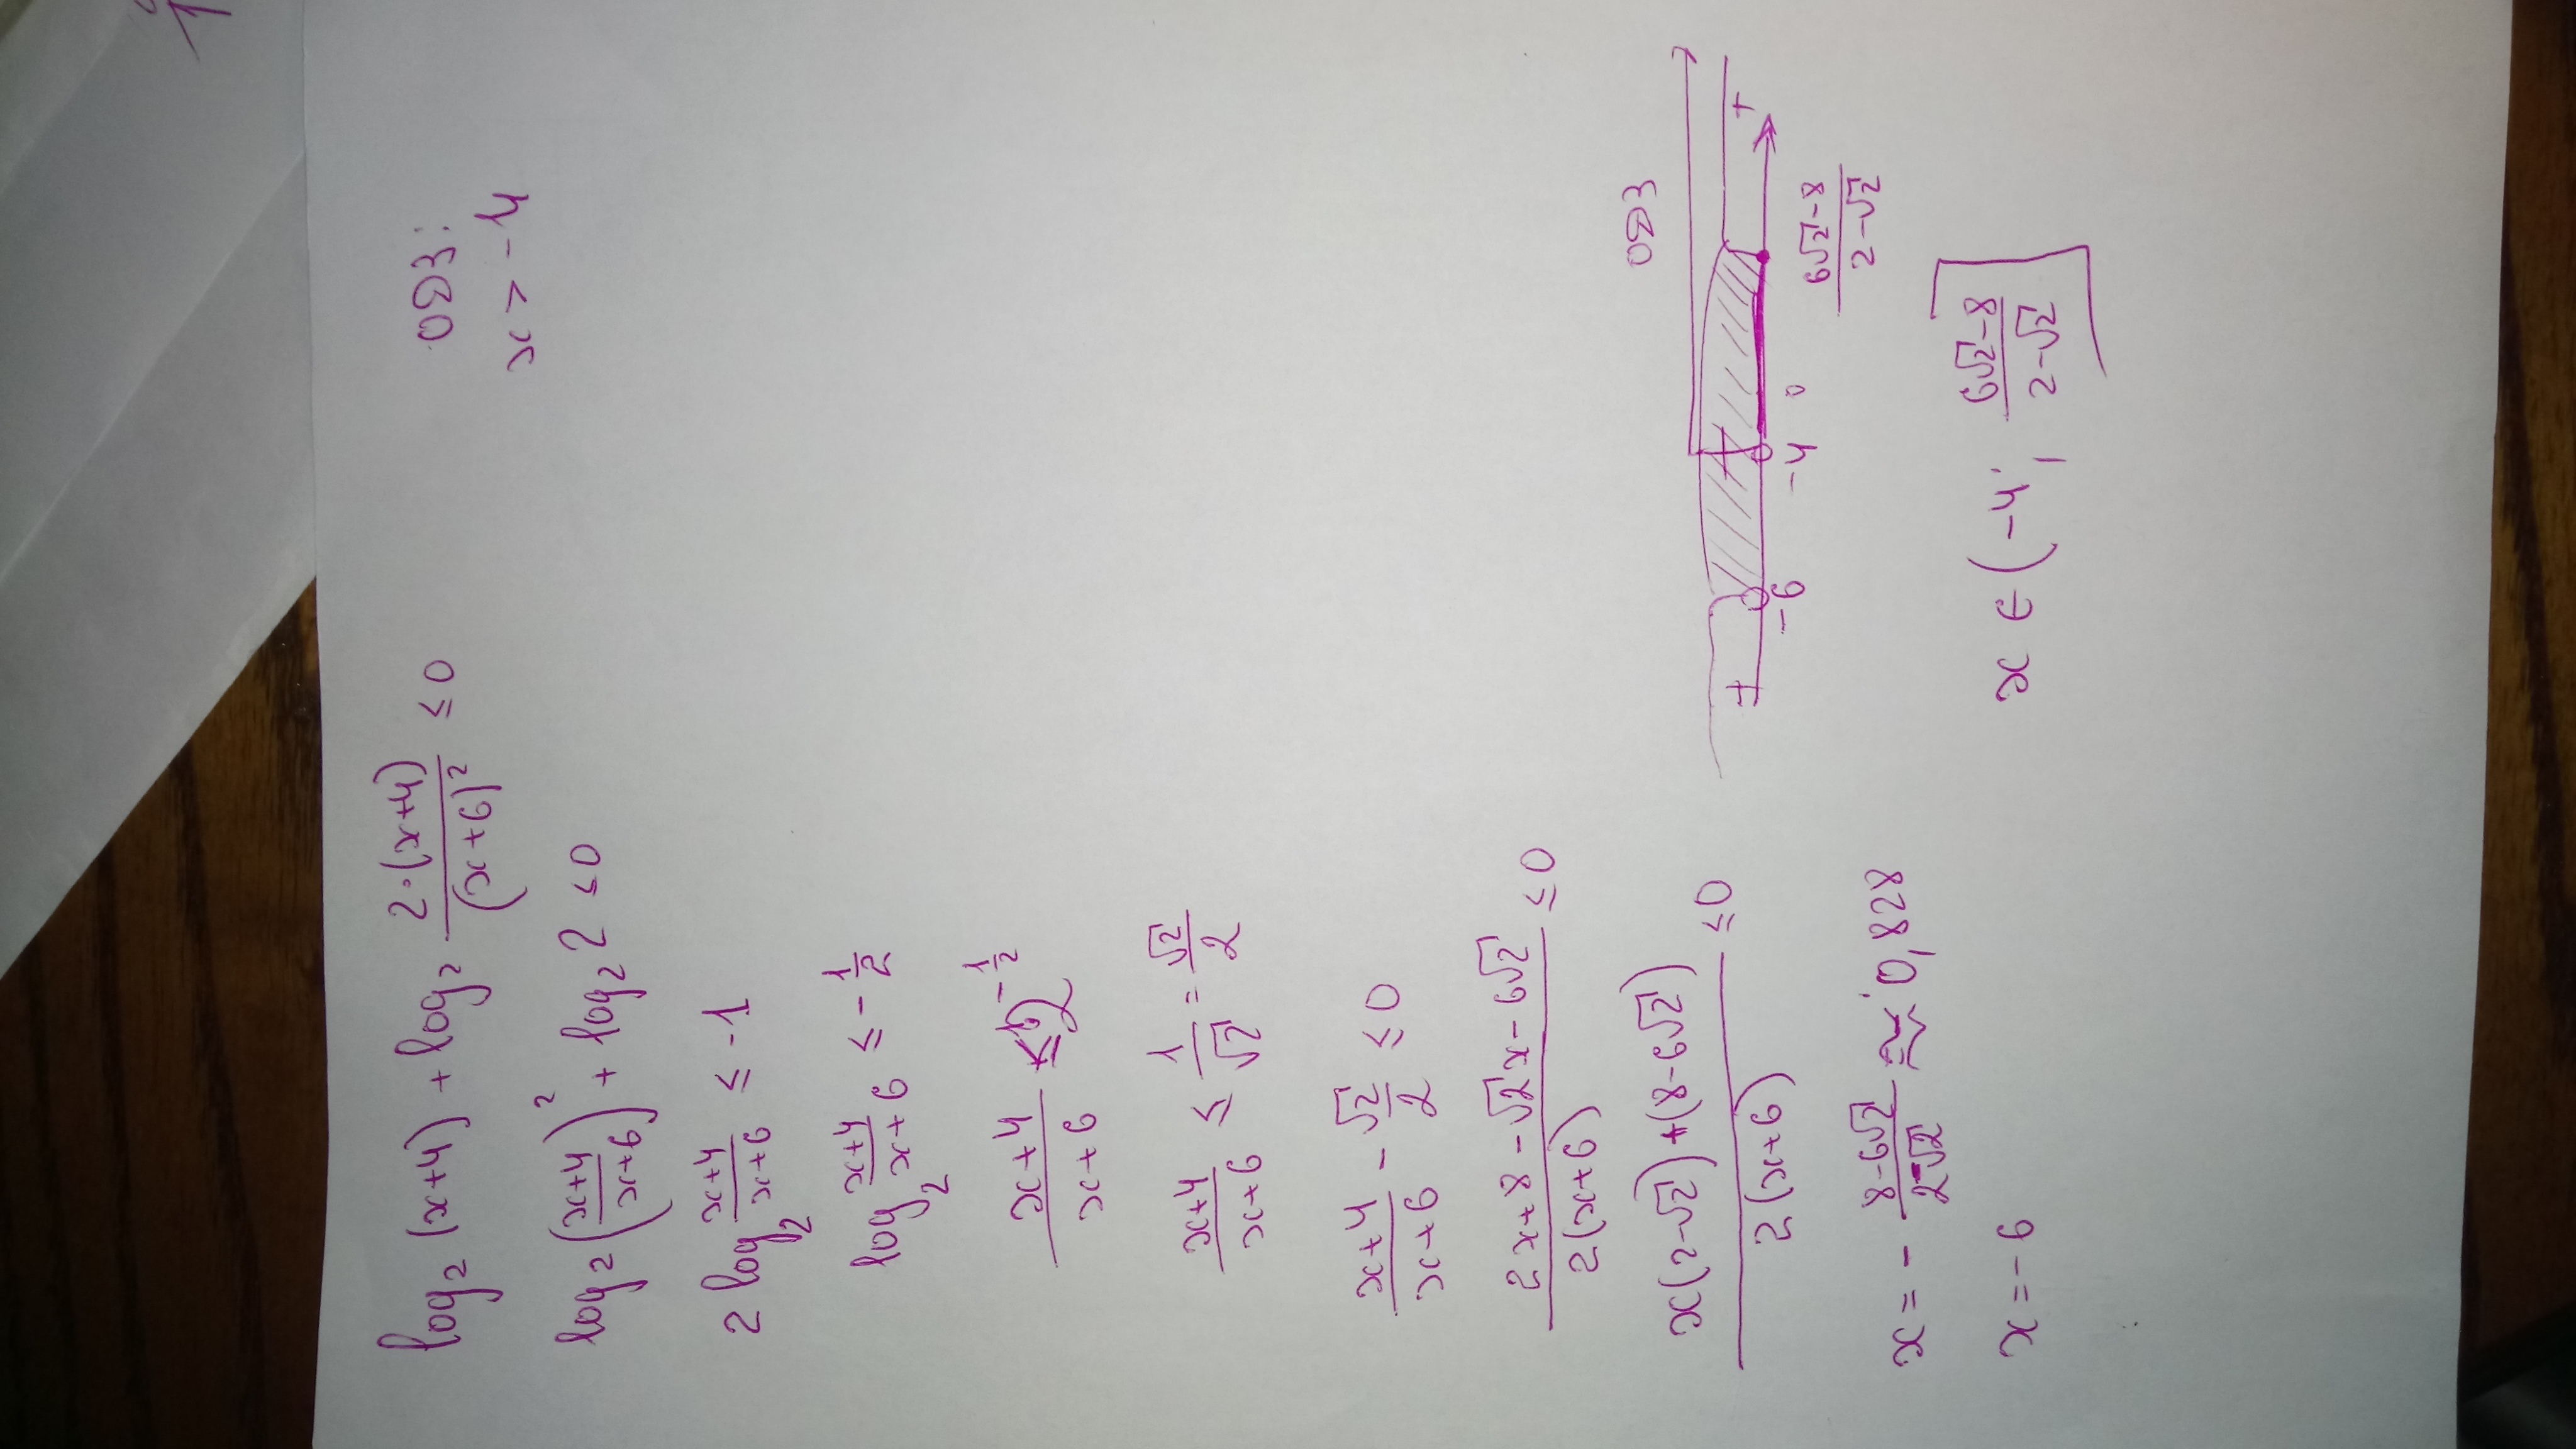 log₂ (x+4) + log₂ 2·(x+4)/(x+6)² ≤ 0
ОДЗ:
x > -4
log₂ ((x+4)/(x+6))² + log₂ 2 ≤ 0
2 log₂ (x+4)/(x+6) ≤ -1
log₂ (x+4)/(x+6) ≤ -1/2
(x+4)/(x+6) ≤ 2^(-1/2)
(x+4)/(x+6) ≤ 1/√2 = √2/2
(x+4)/(x+6) - √2/2 ≤ 0
(2x+8-√2x-6√2)/(2(x+6)) ≤ 0
(x(2-√2)+(8-6√2))/(2(x+6)) ≤ 0
x = - (8-6√2)/(2-√2) ≈ 0,828
x = -6
ОДЗ
+ +
-6 -4 0 (6√2-8)/(2-√2)
x ∈ (-4; (6√2-8)/(2-√2)]